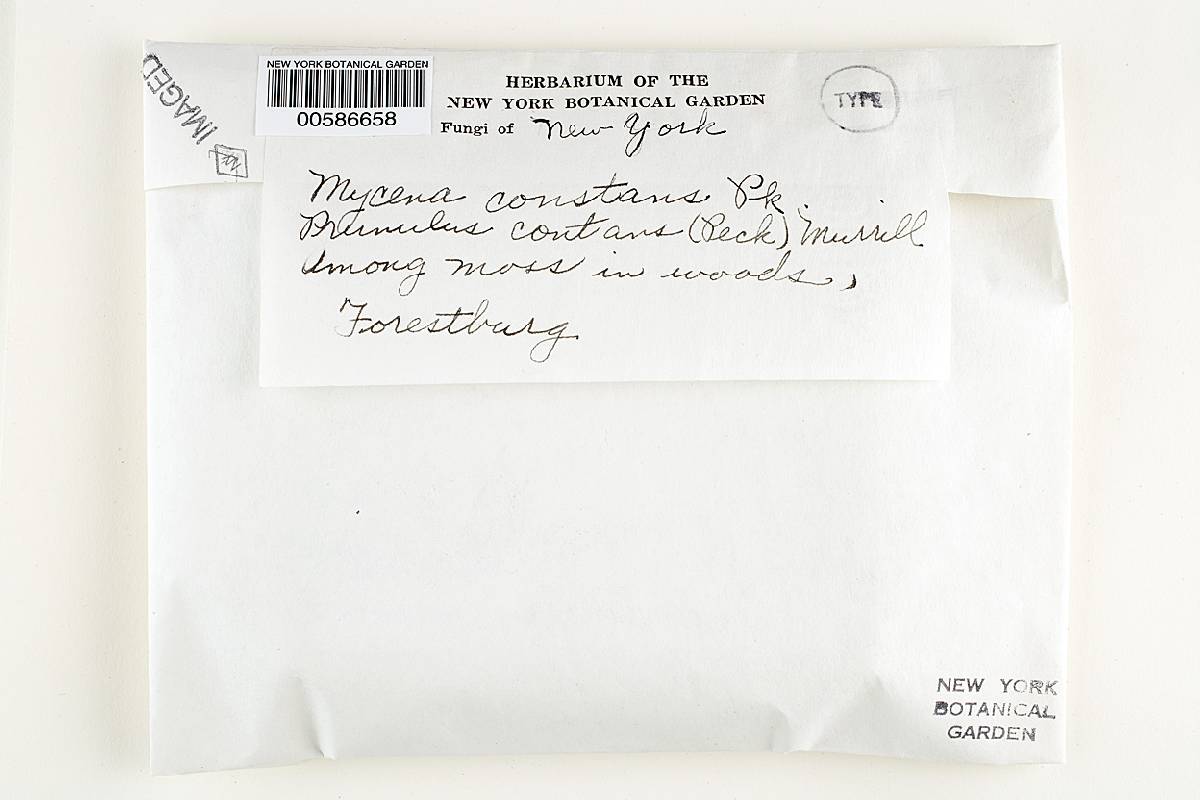 IMAGED
NEW YORK BOTANICAL GARDEN
00586658
HERBARIUM OF THE
NEW YORK BOTANICAL GARDEN
Fungi of New York
TYPE
Mycena constans Pk.
Prunulus contans (Peck) Murrill
Among moss in woods,
Forestburg
NEW YORK
BOTANICAL
GARDEN